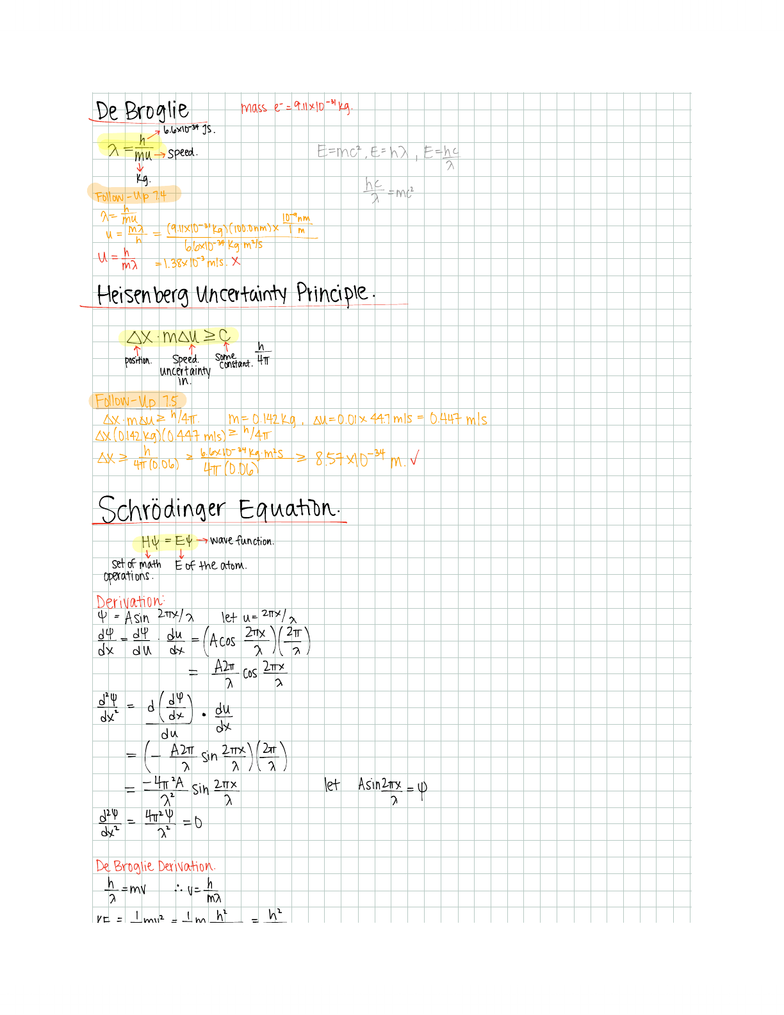 De Broglie
mass e⁻ = 9.11x10⁻³¹ kg.
λ = h/mu
6.6x10⁻³⁴ Js.
speed.
kg.
E=mc², E=hλ, E=hc/λ
hc/λ = mc²
Follow-Up 7.4
λ = h/mu
u = mλ/h = (9.11x10⁻³¹ kg)(100.0nm) x 10⁻⁹nm/1 m / 6.6x10⁻³⁴ kg m²/s
u = h/mλ = 1.38x10⁻³ m/s. x
Heisenberg Uncertainty Principle.
Δx · mΔu ≥ C
position. Speed. Some constant. h/4π
uncertainty
in.
Follow-Up 7.5
Δx·mΔu ≥ h/4π. m = 0.142 kg, Δu = 0.01 x 44.7 m/s = 0.447 m/s
Δx(0.142kg)(0.447 m/s) ≥ h/4π
Δx ≥ h/4π(0.06) ≥ 6.6x10⁻³⁴ kg·m²s/4π(0.06) ≥ 8.57x10⁻³⁴ m. ✓
Schrödinger Equation.
Hψ = Eψ → wave function.
set of math E of the atom.
operations.
Derivation:
ψ = A sin 2πx/λ let u = 2πx/λ
dψ/dx = dψ/du · du/dx = (A cos 2πx/λ)(2π/λ)
= A2π/λ cos 2πx/λ
d²ψ/dx² = d(dψ/dx)/du · du/dx
= (- A2π/λ sin 2πx/λ)(2π/λ)
= -4π²A/λ² sin 2πx/λ let A sin 2πx/λ = ψ
d²ψ/dx² = 4π²ψ/λ² = 0
De Broglie Derivation.
h/λ = mv ∴ v = h/mλ
KE = 1/2 mv² = 1/2 m h²/ = h²/